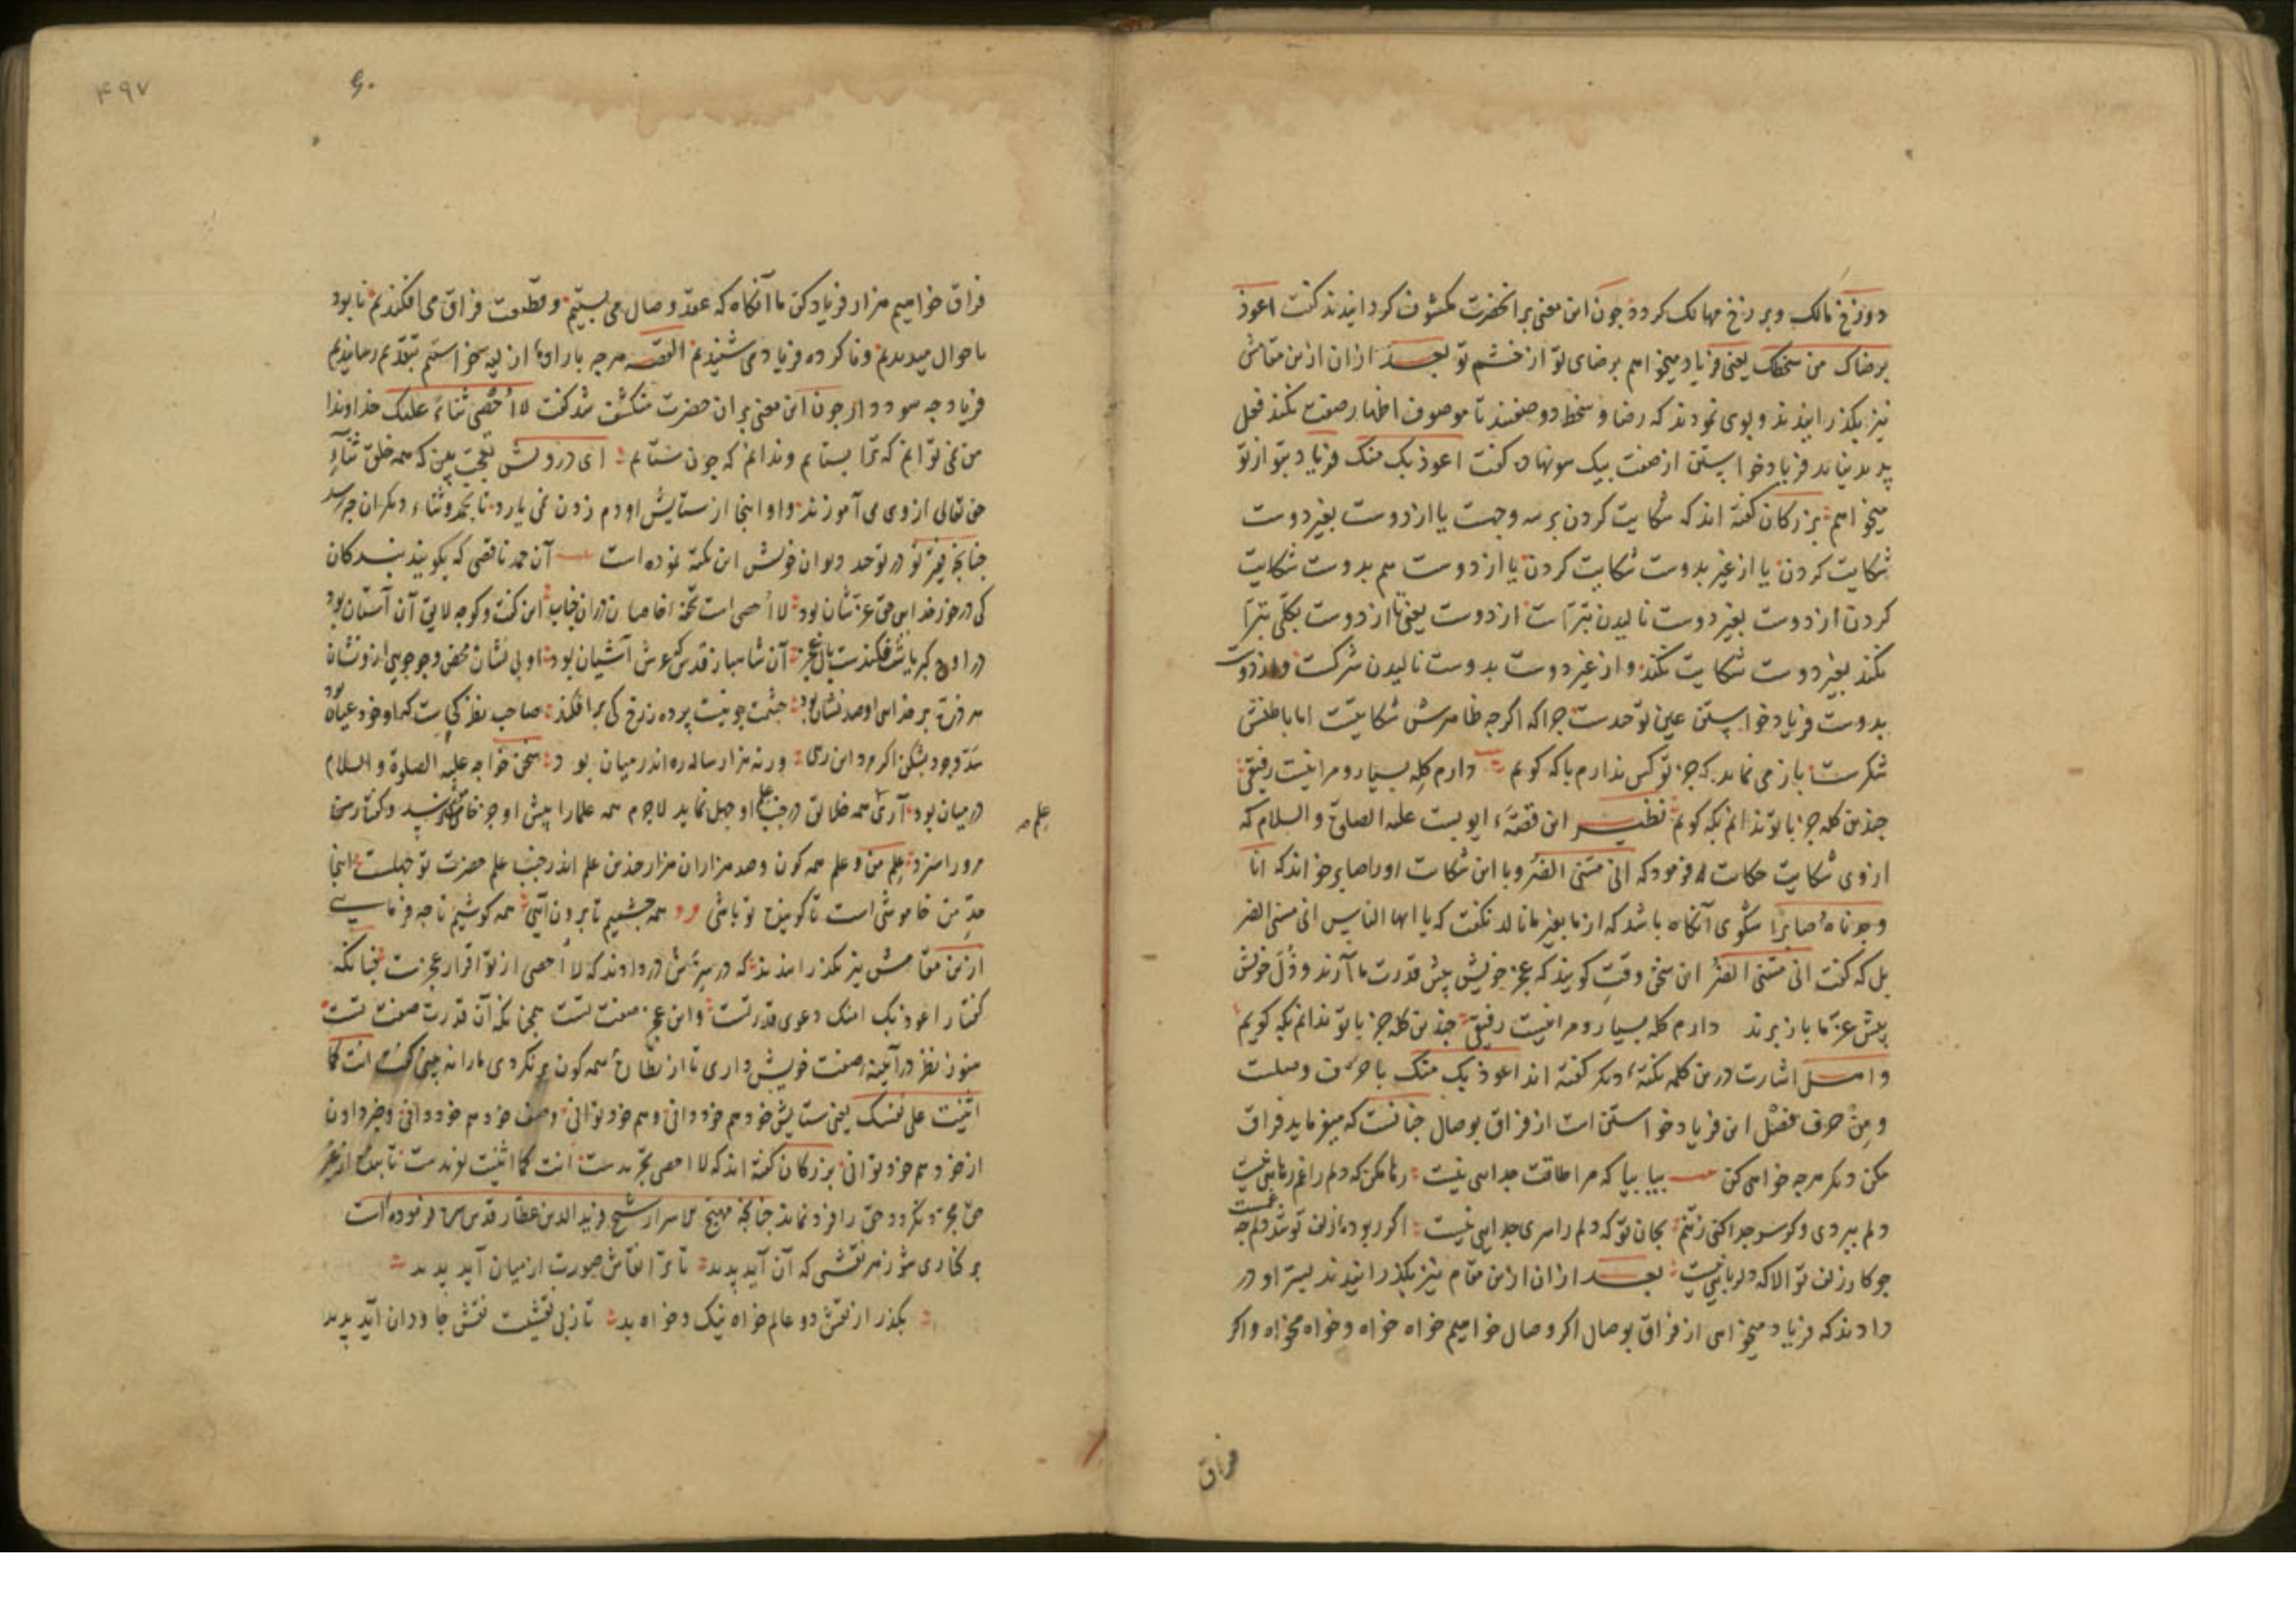 دوزخ مالک و برزخ مهالک کردد چون این معنی بر آنحضرت مکشوف کردانیدند کفت اعوذ
برضاک من سخطک یعنی فریاد میخواهم برضای تو از خشم تو بعد ازان ازین مقامش
نیز بکذرانیدند و بوی نمودند که رضا و سخط دو صفتند تا موصوف اظهار صفت نکند فعل
پدید نیاید فریاد خواستن از صفت بیک سو نهاد کفت اعوذ بک منک فریاد بتو از تو
میخواهم بزرکان کفته اند که شکایت کردن بر سه وجهت یا از دوست بغیر دوست
شکایت کردن یا از غیر بدوست شکایت کردن یا از دوست هم بدوست شکایت
کردن از دوست بغیر دوست نالیدن تبراست از دوست یعنی تا از دوست بکلی تبرا
نکند بغیر دوست شکایت نکند و از غیر دوست بدوست نالیدن شرکت و از دوست
بدوست فریاد خواستن عین توحدست چرا که اکرچه ظاهرش شکایتت اما باطنش
شکرست باز می نماید که جز تو کس ندارم با که کویم دارم کله بسیار و مرا نیست رفیقی
چندین کله جز با تو ندانم بکه کویم نظیر این قصهٔ ایوبست علیه الصلوة والسلام که
ازوی شکایت حکایت فرمود که انی مسنی الضر و با این شکایت او را صابر خواند که انا
وجدناه صابرا شکوی آنکاه باشد که از ما بغیر ما نالد نکفت که یا ایها الناس انی مسنی الضر
بل که کفت انی مسنی الضر این سخن وقتی کویند که عجز خویش پیش قدرت ما آرند و ذل خویش
پیش عز ما باز برند دارم کله بسیار و مرا نیست رفیقی چندین کله جز با تو ندانم بکه کویم
و اهل اشارت درین کلمه نکتهٔ دیکر کفته اند اعوذ بک منک با حرف وصلت
و من حرف فصل این فریاد خواستن است از فراق بوصال چنانست که میفرماید فراق
مکن دیکر هرچه خواهی کن بیا بیا که مرا طاقت جدایی نیست رها مکن که دلم را غم رهایی نیست
دلم ببردی و کر سر جدا کنی ز تنم بجان تو که دلم را سری جدایی نیست اکر ربوده زلف تو شد دلم چه عجبست
چو کار زلف تو الا که دلربایی نیست بعد ازان ازین مقام نیز بکذرانیدند بسترا و در
دادند که فریاد میخواهی از فراق بوصال اکر وصال خواهیم خواه خواه و خواه مخواه و اکر
فراق
۴۹۷
فراق خواهیم هزار فریاد کن ما آنکاه که عقد وصال می بستیم و قطیعت فراق می افکندیم نابود
ما حوال میدیدیم و ناکرده فریاد می شنیدیم القصه هرچه باراده ازلیه خواستیم بتقدیم رسانیدیم
فریاد چه سود دارد چون این معنی بران حضرت منکشف شد کفت لا احصی ثناء علیک خداوندا
من نمی توانم که ترا بستایم و ندانم که چون ستایم ای درویش تعجب ببین که همه خلق ثناء
حق تعالی ازوی می آموزند و او اینجا از ستایش او دم زدن نمی یارد تا بحمد و ثناء دیکران چه رسد
چنانچه فقیر تو در توحد دیوان خویش این نکته نموده است آن حمد ناقصی که بکویند بندکان
کی در خور خدایی حق عز شان بود لا احصی است تحفه خاصان دران جناب این کفت و کو چه لایق آن آستان بود
در اوج کبریاش فکندست بال عجز آن شاهباز قدس که عرش آشیان بود او بی نشان محض و جوجویی ازو نشان
هر ذره بر خدایی او صد نشان بود چشمت چو نیست پرده ز رخ کی بر افکند صاحب نظر کجاست که او خود عیان بود
سد وجود بشکن اکر مرد این رهی ورنه هزار ساله ره اندر میان بود سخن خواجه علیه الصلوة والسلام
در میان بود آری همه خلائق در جنب علم او جهل نماید لاجرم همه علما را پیش او جز خاموشی نرسد و کفتار سخن
علم صح
مرورا سزد علم من و علم همه کون و صد هزاران هزار چندین علم اندر جنب علم حضرت تو جهلست اینجا
حد من خاموشی است تا کوینده تو باشی همه چشمیم تا برون آیی همه کوشیم تا چه فرمایی
ازین مقامش نیز بکذرانیدند که در سرش در دادند که لا احصی از تو اقرار عجزست چنانکه
کفتار اعوذ بک منک دعوی قدرتست و این عجز صفت تست همچنانکه آن قدرت صفت تست
هنوز نظر در آیینه صفت خویش داری تا از نظاره همه کون بر نکردی ما را نه بینی کفت انت کما
اثنیت علی نفسک یعنی ستایش خود هم خود دانی و هم خود توانی وصف خود هم خود دانی و خبر دادن
از خود هم خود توانی بزرکان کفته اند که لا احصی تجریدست انت کما اثنیت تفریدست تا بنده از غیر
حق مجرد نکردد حق را فرد نداند چنانچه مهیج الاسرار شیخ فریدالدین عطار قدس سره فرموده است
برکناری شو ز هر نقشی که آن آید پدید تا ترا نقاش صورت از میان آید پدید
بکذر از نقش دو عالم خواه نیک و خواه بد تا ز بی نقشیت نقش جاودان آید پدید